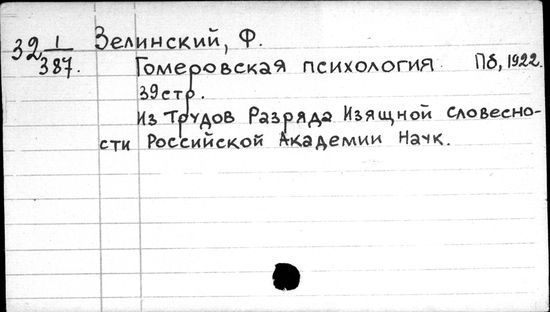 32 1/387. Зелинский, Ф.
Гомеровская психология Пб, 1922.
39 стр.
Из Трудов Разряда Изящной словесно-
сти Российской Академии Наук.